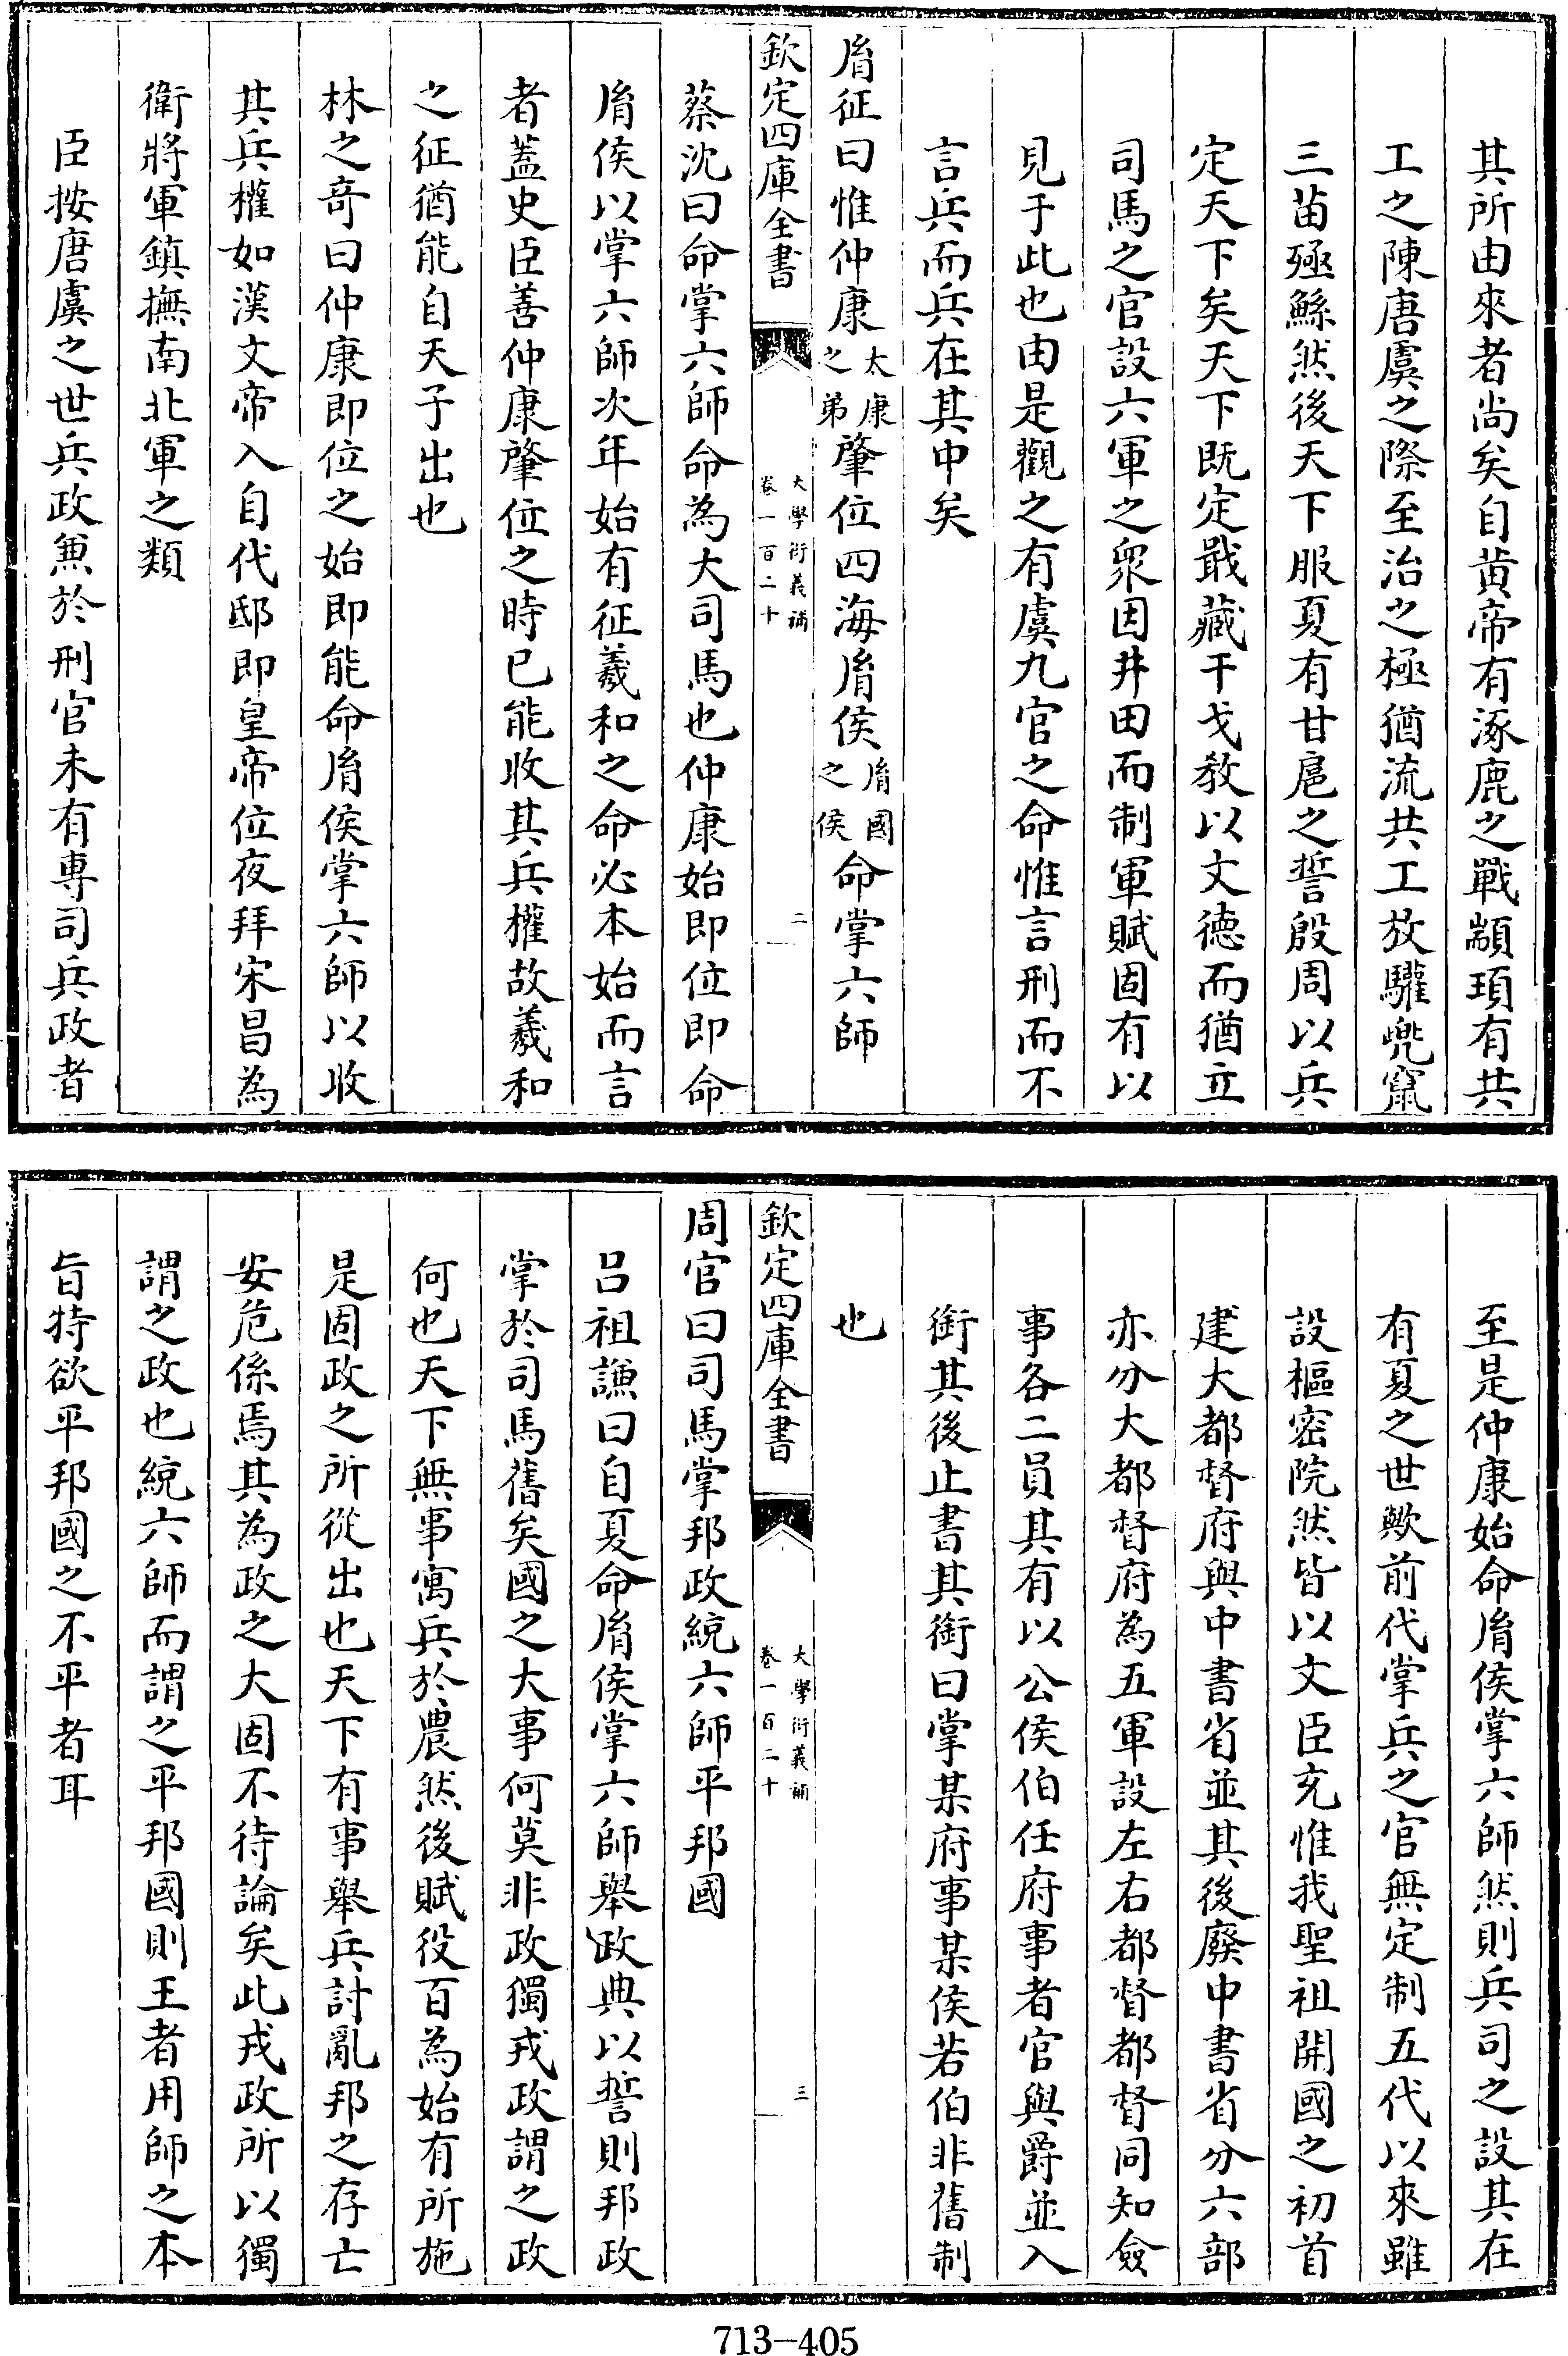 其所由來者尚矣自黄帝有涿鹿之戰顓頊有共
工之陳唐虞之際至治之極猶流共工放驩兜竄
三苗殛鯀然後天下服夏有甘扈之誓殷周以兵
定天下矣天下既定戢藏干戈教以文德而猶立
司馬之官設六軍之衆因井田而制軍賦固有以
見于此也由是觀之有虞九官之命惟言刑而不
言兵而兵在其中矣
胤征曰惟仲康太康之弟肇位四海胤侯胤國之侯命掌六師
欽定四庫全書
大學衍義補
卷一百二十
二
蔡沈曰命掌六師命為大司馬也仲康始即位即命
胤侯以掌六師次年始有征羲和之命必本始而言
者蓋史臣善仲康肇位之時已能收其兵權故羲和
之征猶能自天子出也
林之奇曰仲康即位之始即能命胤侯掌六師以收
其兵權如漢文帝入自代邸即皇帝位夜拜宋昌為
衛將軍鎮撫南北軍之類
臣按唐虞之世兵政兼於刑官未有專司兵政者
至是仲康始命胤侯掌六師然則兵司之設其在
有夏之世歟前代掌兵之官無定制五代以來雖
設樞密院然皆以文臣充惟我聖祖開國之初首
建大都督府與中書省並其後廢中書省分六部
亦分大都督府為五軍設左右都督都督同知僉
事各二員其有以公侯伯任府事者官與爵並入
銜其後止書其銜曰掌某府事某侯若伯非舊制
也
欽定四庫全書
大學衍義補
卷一百二十
三
周官曰司馬掌邦政統六師平邦國
吕祖謙曰自夏命胤侯掌六師舉政典以誓則邦政
掌於司馬舊矣國之大事何莫非政獨戎政謂之政
何也天下無事寓兵於農然後賦役百為始有所施
是固政之所從出也天下有事舉兵討亂邦之存亡
安危係焉其為政之大固不待論矣此戎政所以獨
謂之政也統六師而謂之平邦國則王者用師之本
旨特欲平邦國之不平者耳
713-405